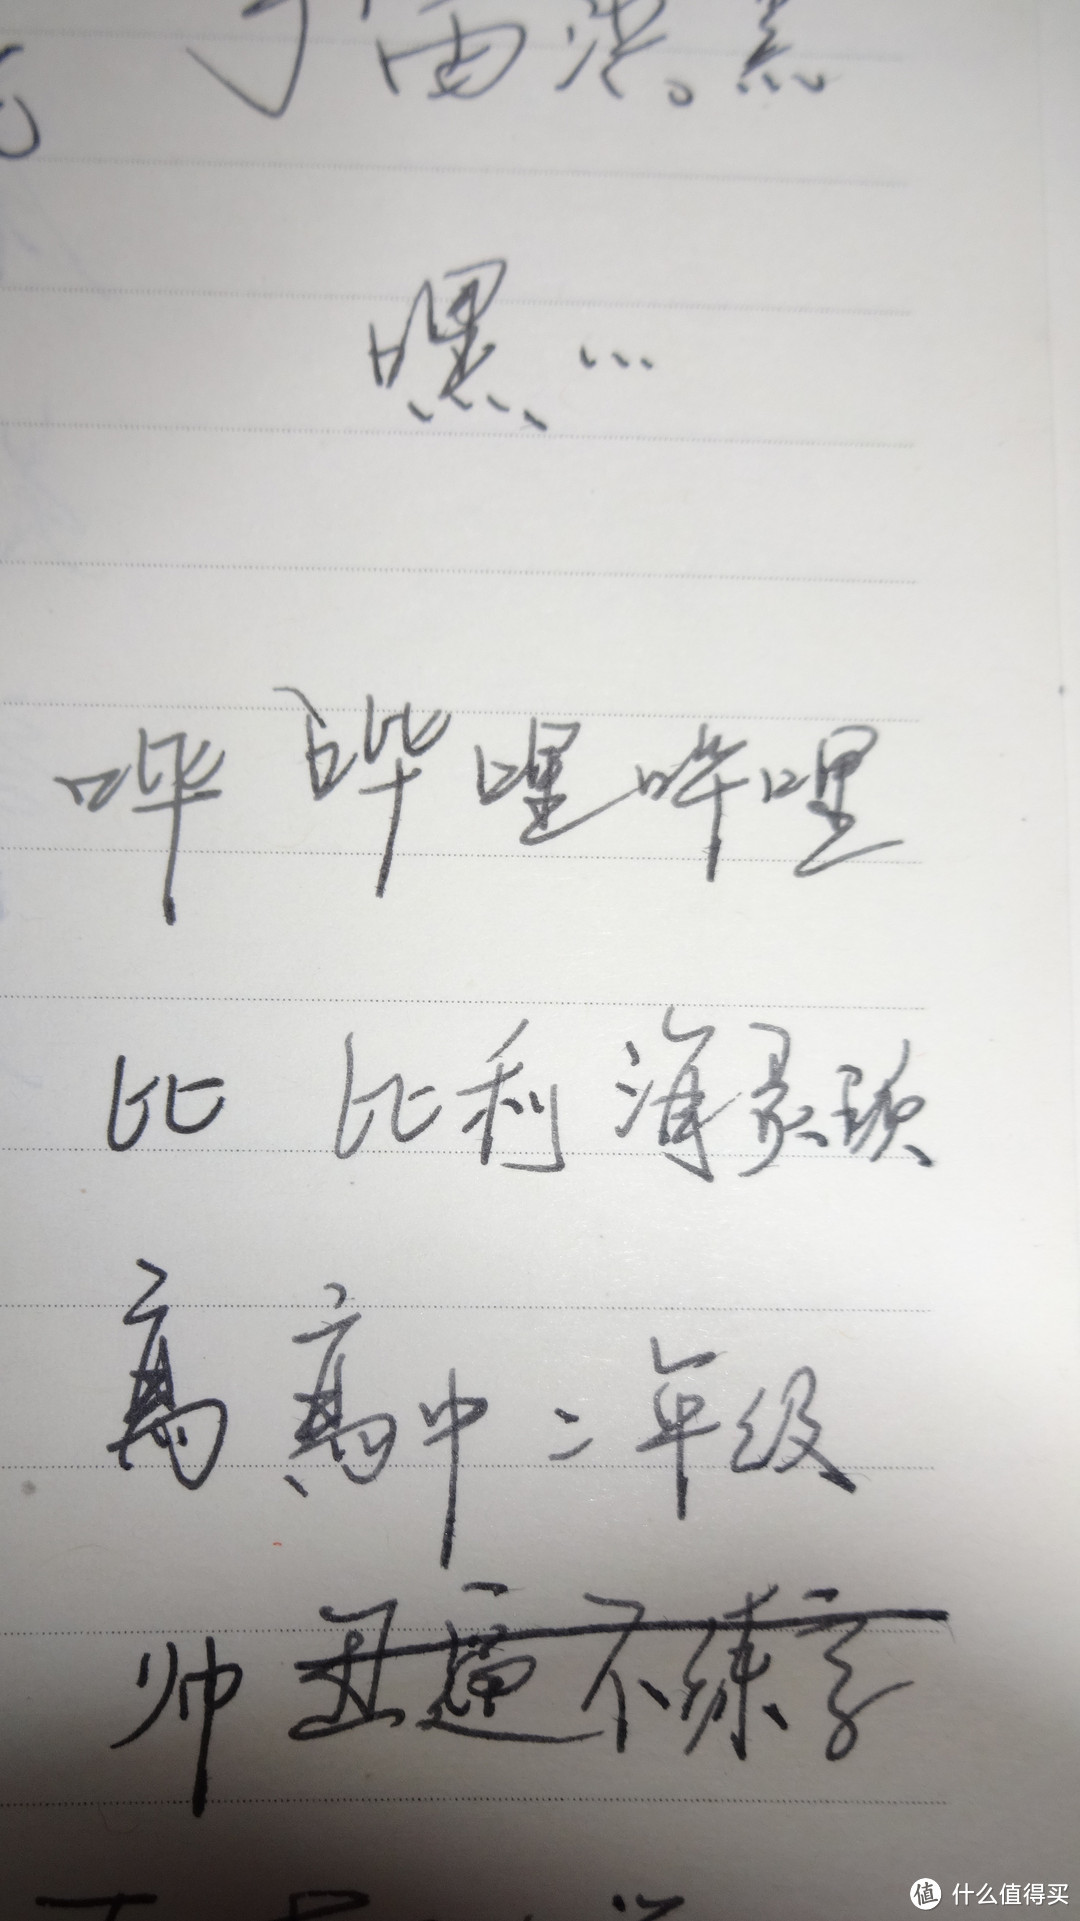 嘿…
哔 哔哩哔哩
比 比利海景
高 高中二年级
帅 丑逼不练字
值 什么值得买